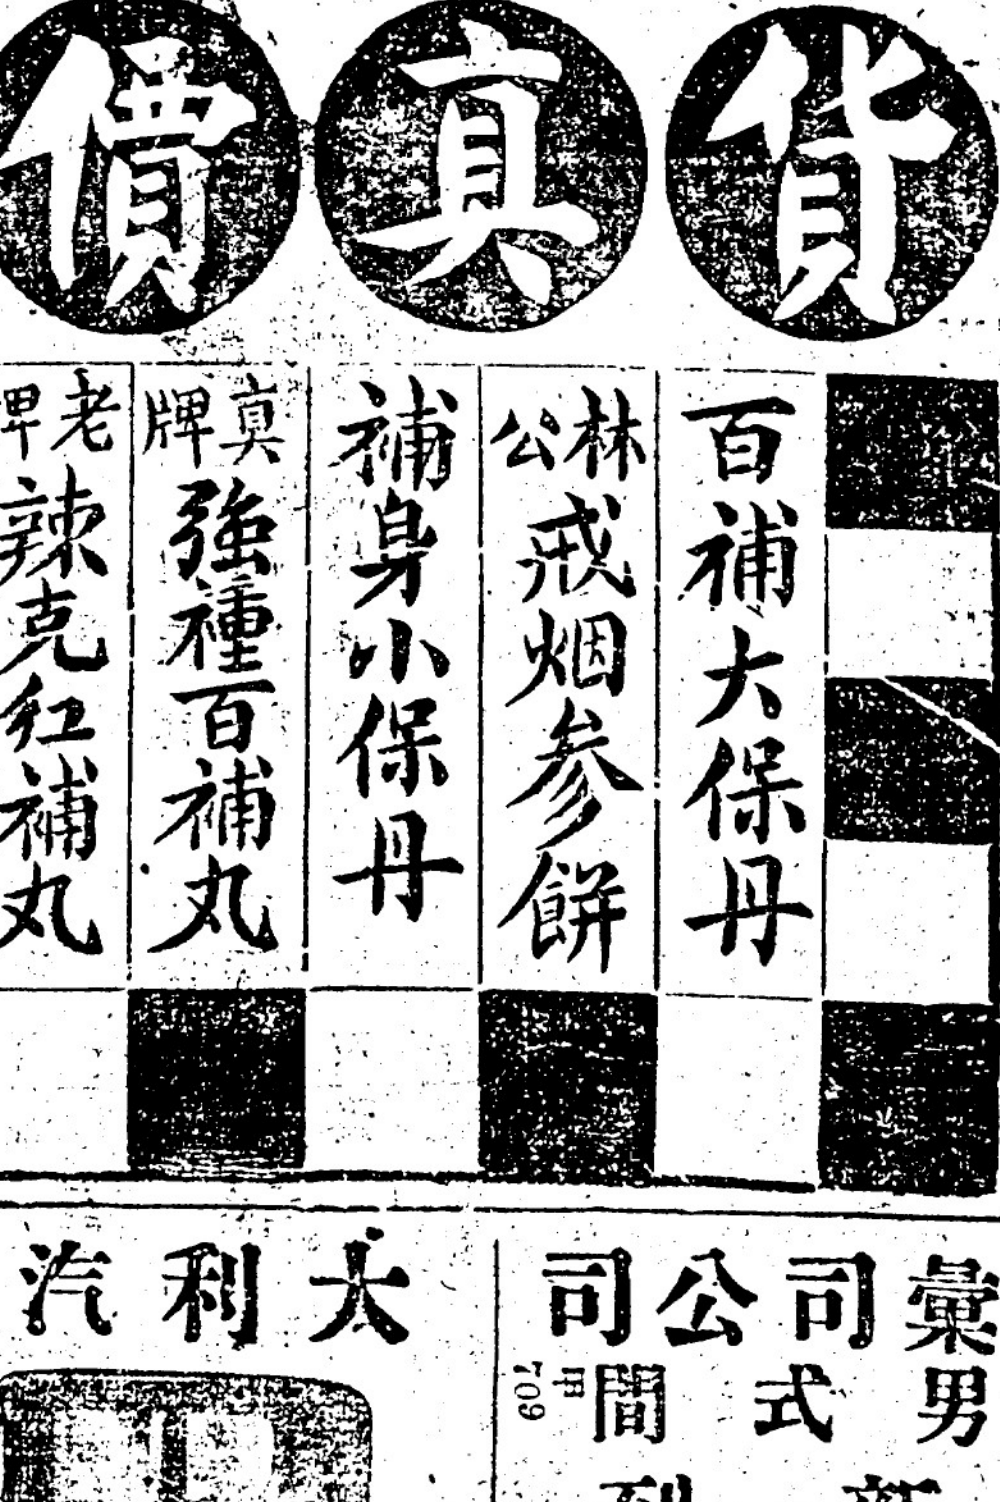 貨真價
百補大保丹
林公戒烟参餅
補身小保丹
真牌強種百補丸
老牌辣克紅補丸
彙司公司
男式間
709
大利汽